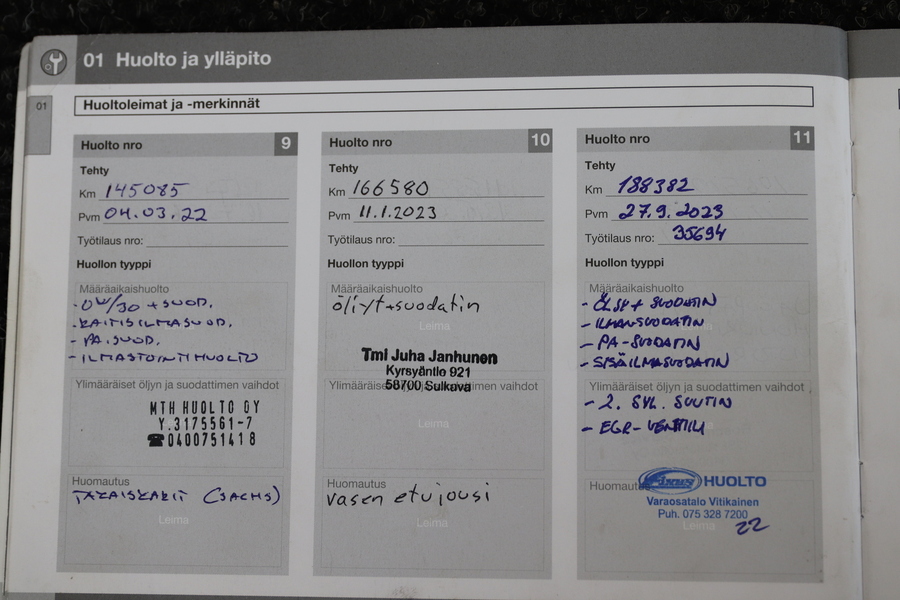 01 Huolto ja ylläpito
01
Huoltoleimat ja -merkinnät
Huolto nro 9
Tehty
Km 145085
Pvm 04.03.22
Työtilaus nro:
Huollon tyyppi
Määräaikaishuolto
- 0W/30 + SUOD.
- RAITISILMASUOD.
- PA.SUOD.
- ILMASTOINTIHUOLTO
Ylimääräiset öljyn ja suodattimen vaihdot
MTH HUOLTO OY
Y.3175561-7
☎0400751418
Huomautus
TAKAISKARIT (SACHS)
Leima
Huolto nro 10
Tehty
Km 166580
Pvm 11.1.2023
Työtilaus nro:
Huollon tyyppi
Määräaikaishuolto
öljyt+suodatin
Leima
Tmi Juha Janhunen
Kyrsyäntie 921
58700 Sulkava
Ylimääräiset öljyn ja suodattimen vaihdot
Leima
Huomautus
vasen etujousi
Leima
Huolto nro 11
Tehty
Km 188382
Pvm 27.9.2023
Työtilaus nro: 35694
Huollon tyyppi
Määräaikaishuolto
- ÖLJY + SUODATIN
- ILMANSUODATIN
- PA-SUODATIN
- SISÄILMASUODATIN
Ylimääräiset öljyn ja suodattimen vaihdot
- 2. SYL. SUUTIN
- EGR-VENTTIILI
Huomautus
Fixus HUOLTO
Varaosatalo Vitikainen
Puh. 075 328 7200
Leima
22